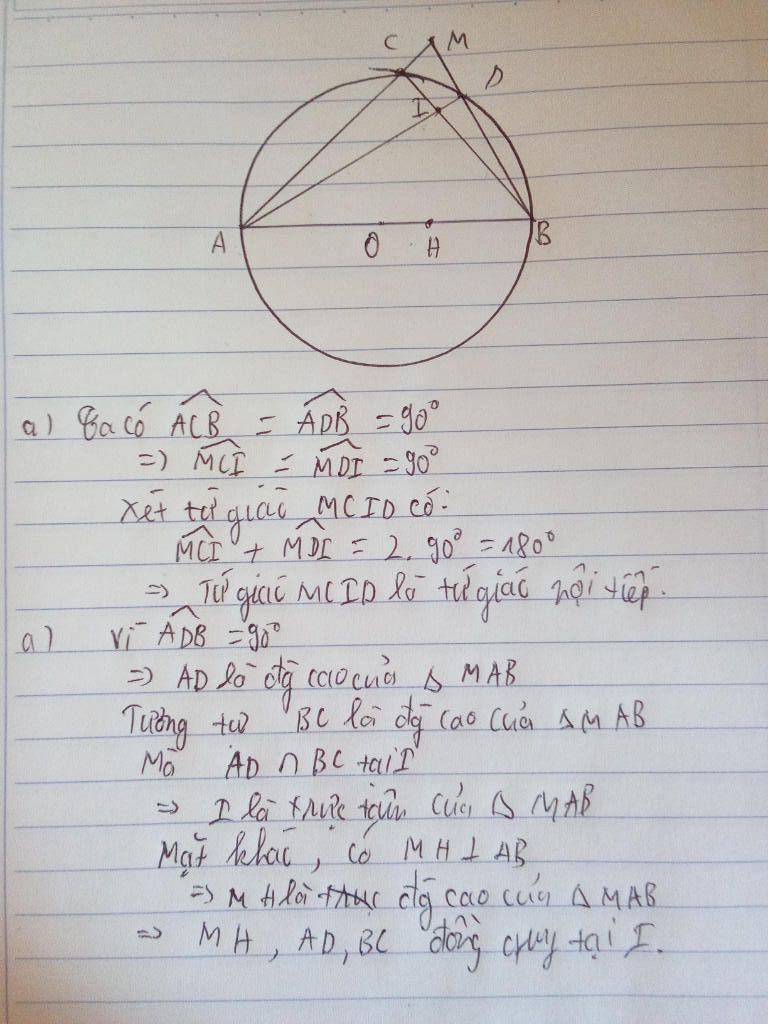 C M
D
I
A O H B
a) Ta có ACB = ADB = 90°
=> MCI = MDI = 90°
Xét tứ giác MCID có:
MCI + MDI = 2. 90° = 180°
=> Tứ giác MCID là tứ giác nội tiếp.
a) Vì ADB = 90°
=> AD là đg cao của Δ MAB
Tương tự BC là đg cao của Δ MAB
Mà AD ∩ BC tại I
=> I là trực tâm của Δ MAB
Mặt khác, có MH ⊥ AB
=> MH là đg cao của Δ MAB
=> MH, AD, BC đồng quy tại I.